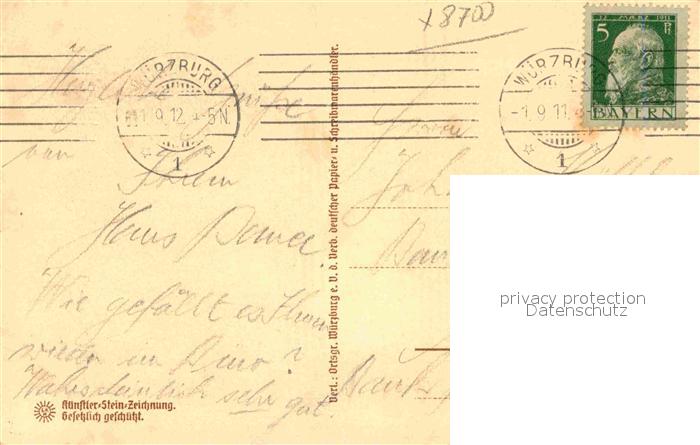 x8700
12. MÄRZ 1911
5 Pf
BAYERN
WÜRZBURG
1.9.12. 4-5N.
1
WÜRZBURG
-1.9.11.
1
Herzliche Grüße
von
Ihrem
Hans
Wie gefällt es Ihnen
wieder im
Wahrscheinlich sehr gut.
Künstler-Stein-Zeichnung.
Gesetzlich geschützt.
Verl.: Ortsgr. Würzburg e. V. d. Verb. deutscher Papier- u. Schreibwarenhändler.
privacy protection
Datenschutz